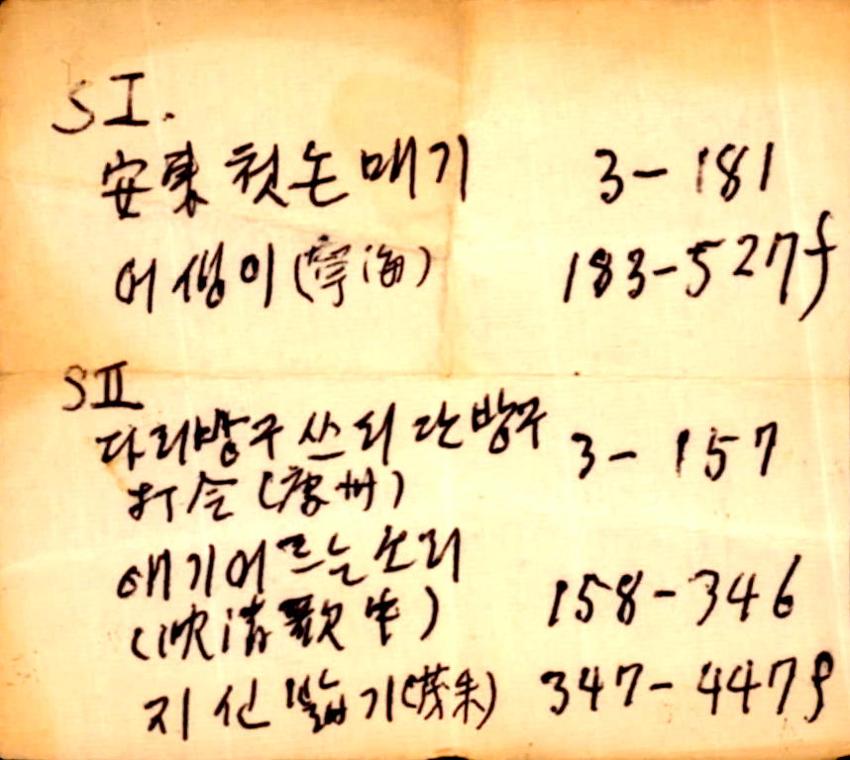 SI.
安東 첫논매기 3-181
어생이(寧海) 183-527f
SII
다리방구 단방구 3-157
打令(慶州)
애기어르는소리
(沈淸歌中) 158-346
지신밟기(茂朱) 347-447f